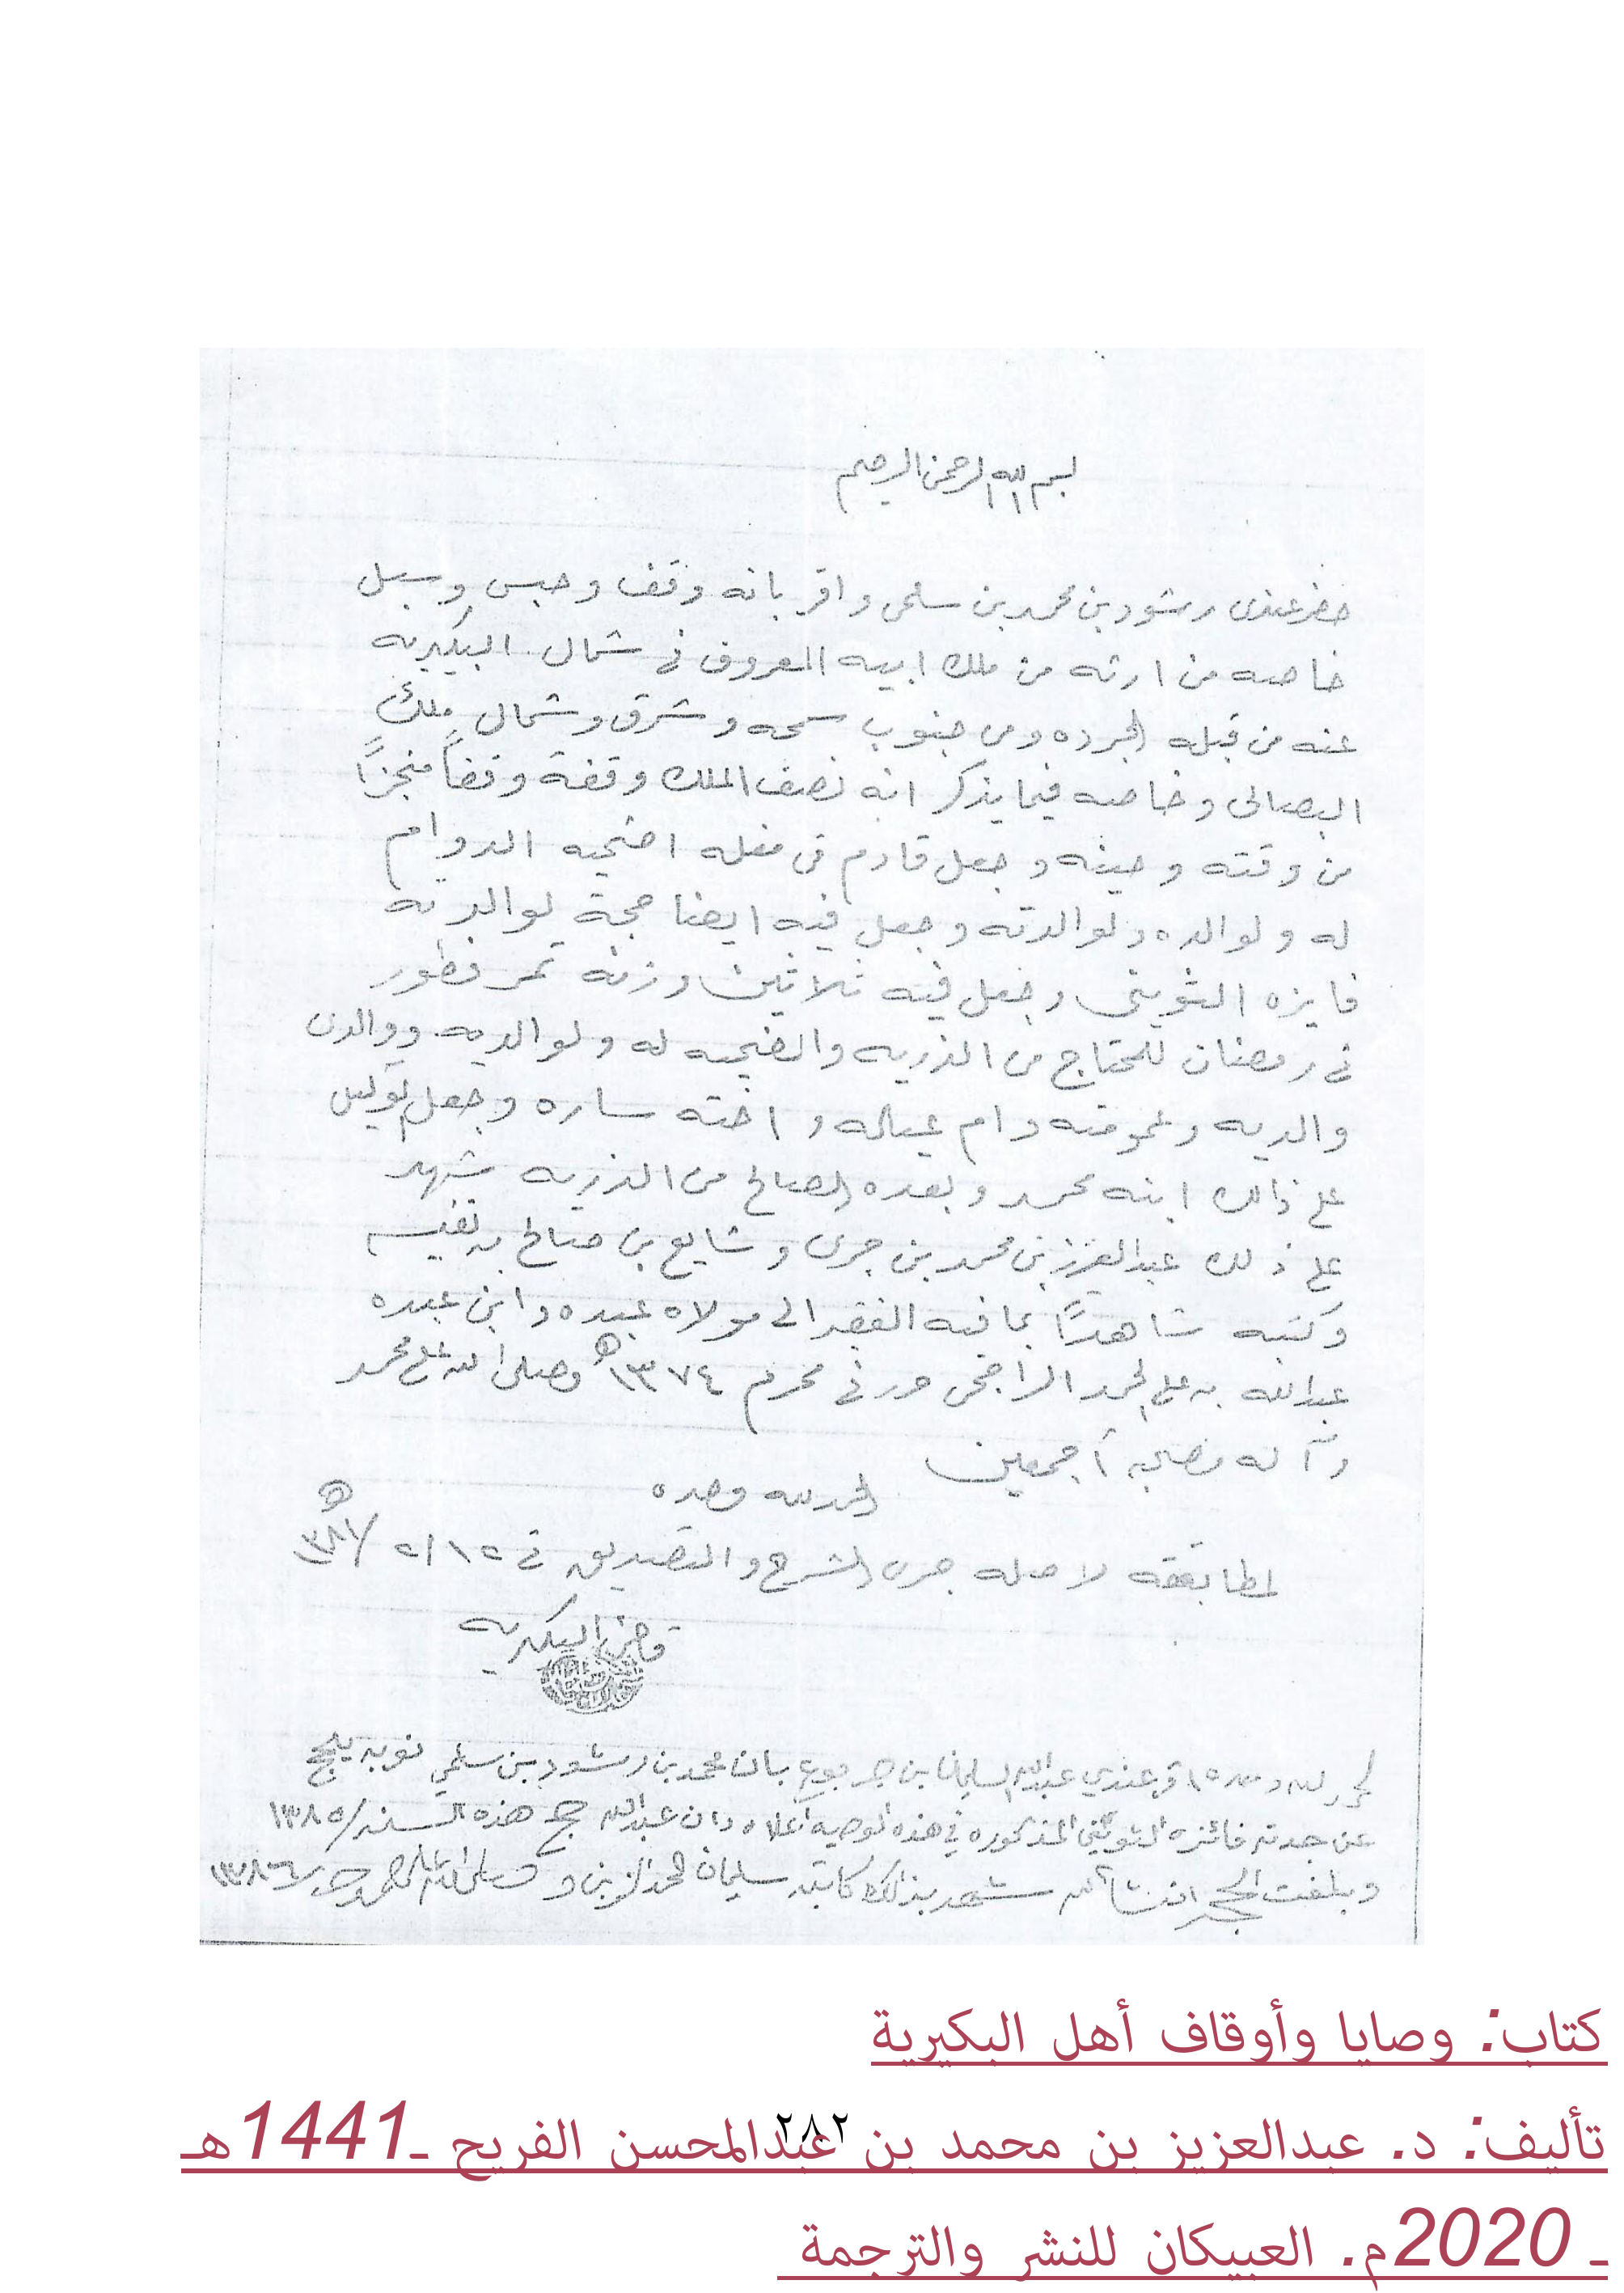 بسم الله الرحمن الرحيم
حضر عندى رشود بن محمد بن سلمى واقر بانه وقف وحبس وسبل
خاصه من ارثه من ملك ابيه المعروف فى شمال البكيريه
عنه من قبله الجرده ومن جنوب سمحه وشرق وشمال ملك
البصالى وخاصه فيما يذكر انه نصف الملك وقفة وقفاً منجزاً
من وقته وحينه وجعل قادم فى مغله اضحيه الدوام
له ولوالده ولوالدته وجعل فيه ايضا حجة لوالدته
فايزه الثوينى وجعل فيه ثلاثين وزنه تمر فطور
فى رمضان للمحتاج من الذريه والضحيه له ولوالديه ووالدى
والديه وعمومته وام عياله واخته ساره وجعل لوكيل
على ذالك ابنه محمد وبعده الصالح من الذريه شهد
على ذلك عبدالعزيز بن محمد بن جرى وشايع بن صالح بن نغيمس
وكتبه شاهداً بما فيه الفقير الى مولاه عبده وابن عبده
عبدالله بن على الحمد الراجحى حرر فى محرم ١٣٧٤هـ وصلى الله على محمد
وآله وصحبه أجمعين
الحمد لله وحده
لمطابقته لاصله جرى الشرح والتصديق فى ١٢/٢/١٣٨١هـ
قاضى البكيريه
الحمد لله وحده قر عندي عبدالله السليمان بن بان محمد بن رشود بن سلمي نوبه يحج
عن جدته فائزه الثويني المذكوره في هذه الوصيه أعلاه وان عبدالله حج هذه السنه/١٣٨٥
وبلغت الحجه انشا الله شهد بذالك كاتبه سليمان المحمد وصلى الله على محمد ١٣٨٦
٢٨٢
كتاب: وصايا وأوقاف أهل البكيرية
تأليف: د. عبدالعزيز بن محمد بن عبدالمحسن الفريح ـ1441هـ
ـ 2020م. العبيكان للنشر والترجمة